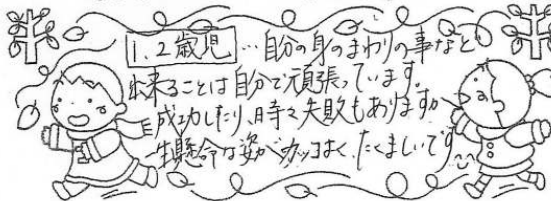 1.2歳児…自分の身のまわりの事など
出来ることは自分で頑張っています。
成功したり、時々失敗もありますが
一生懸命な姿がカッコよく、たくましいです